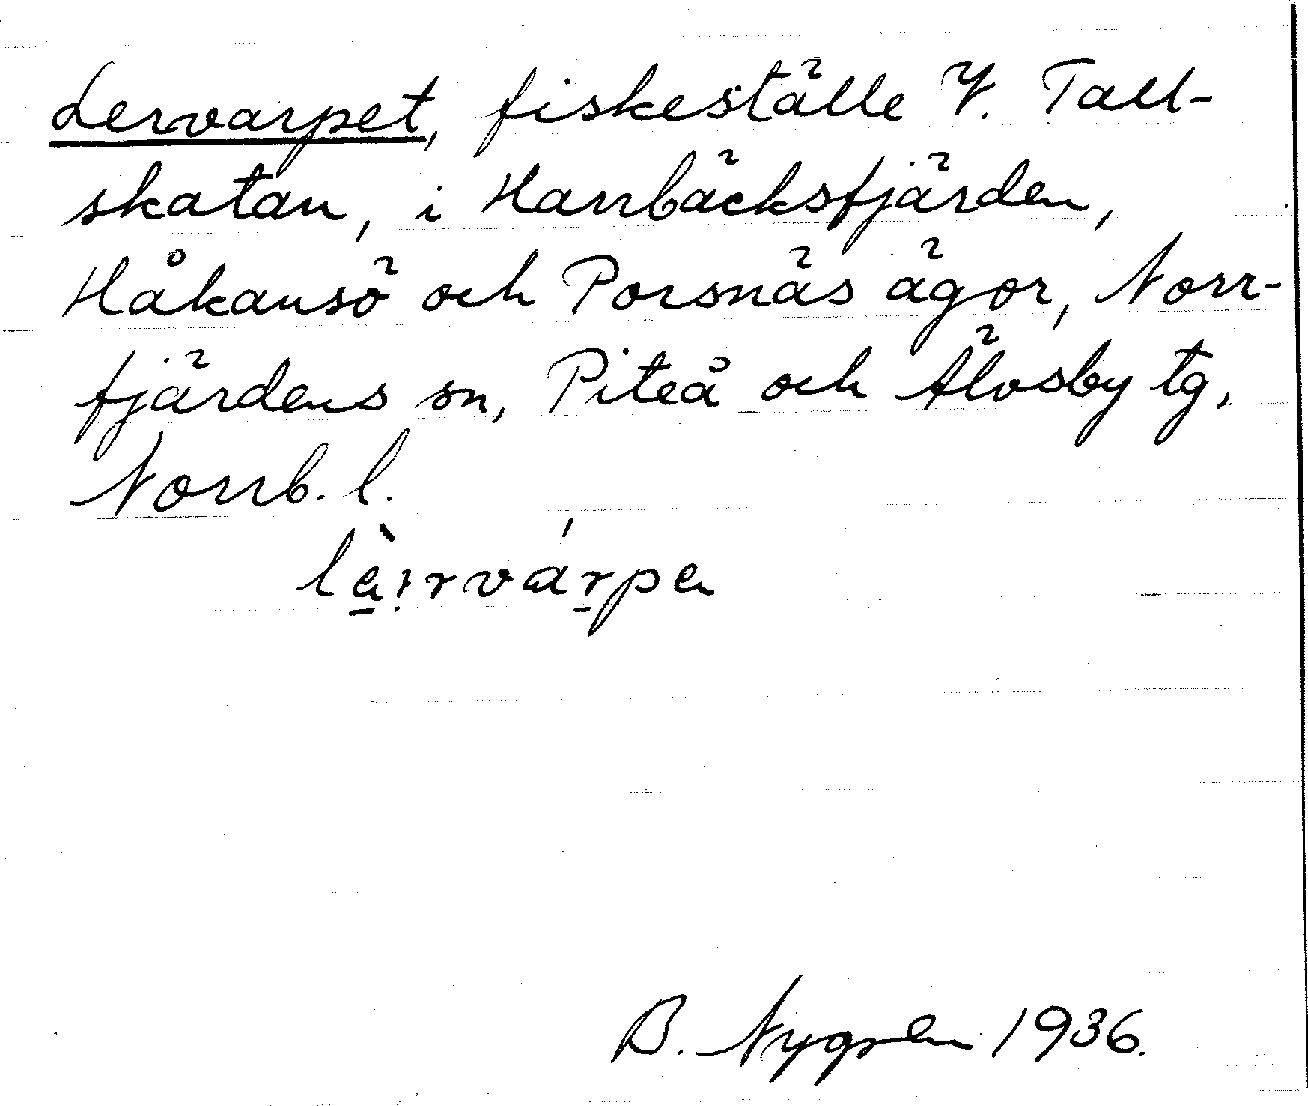 Lervarpet, fiskeställe V. Tall-
skatan, i Harrbäcksfjärden,
Håkansö och Porsnäs ägor, Norr-
fjärdens sn, Piteå och Älvsby tg,
Norrb. l.
lè̱ːrváṟpɐ
B. Nygren 1936.